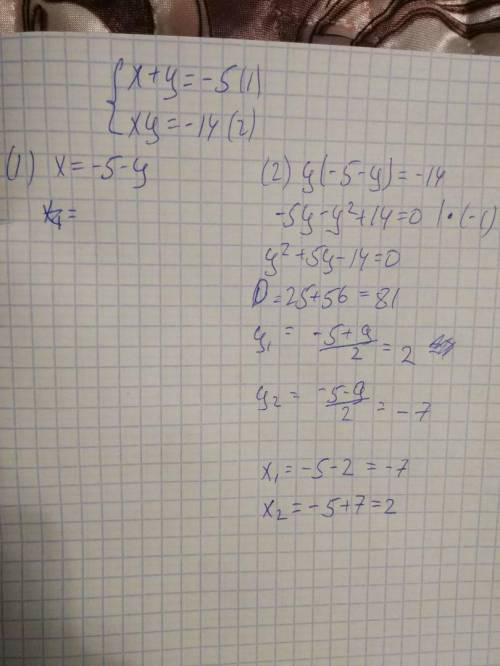 { x+y=-5 (1)
xy=-14 (2)
(1) x=-5-y
(2) y(-5-y)=-14
-5y-y²+14=0 |·(-1)
y²+5y-14=0
D=25+56=81
y₁ = (-5+9)/2 = 2
y₂ = (-5-9)/2 = -7
x₁=-5-2=-7
x₂=-5+7=2